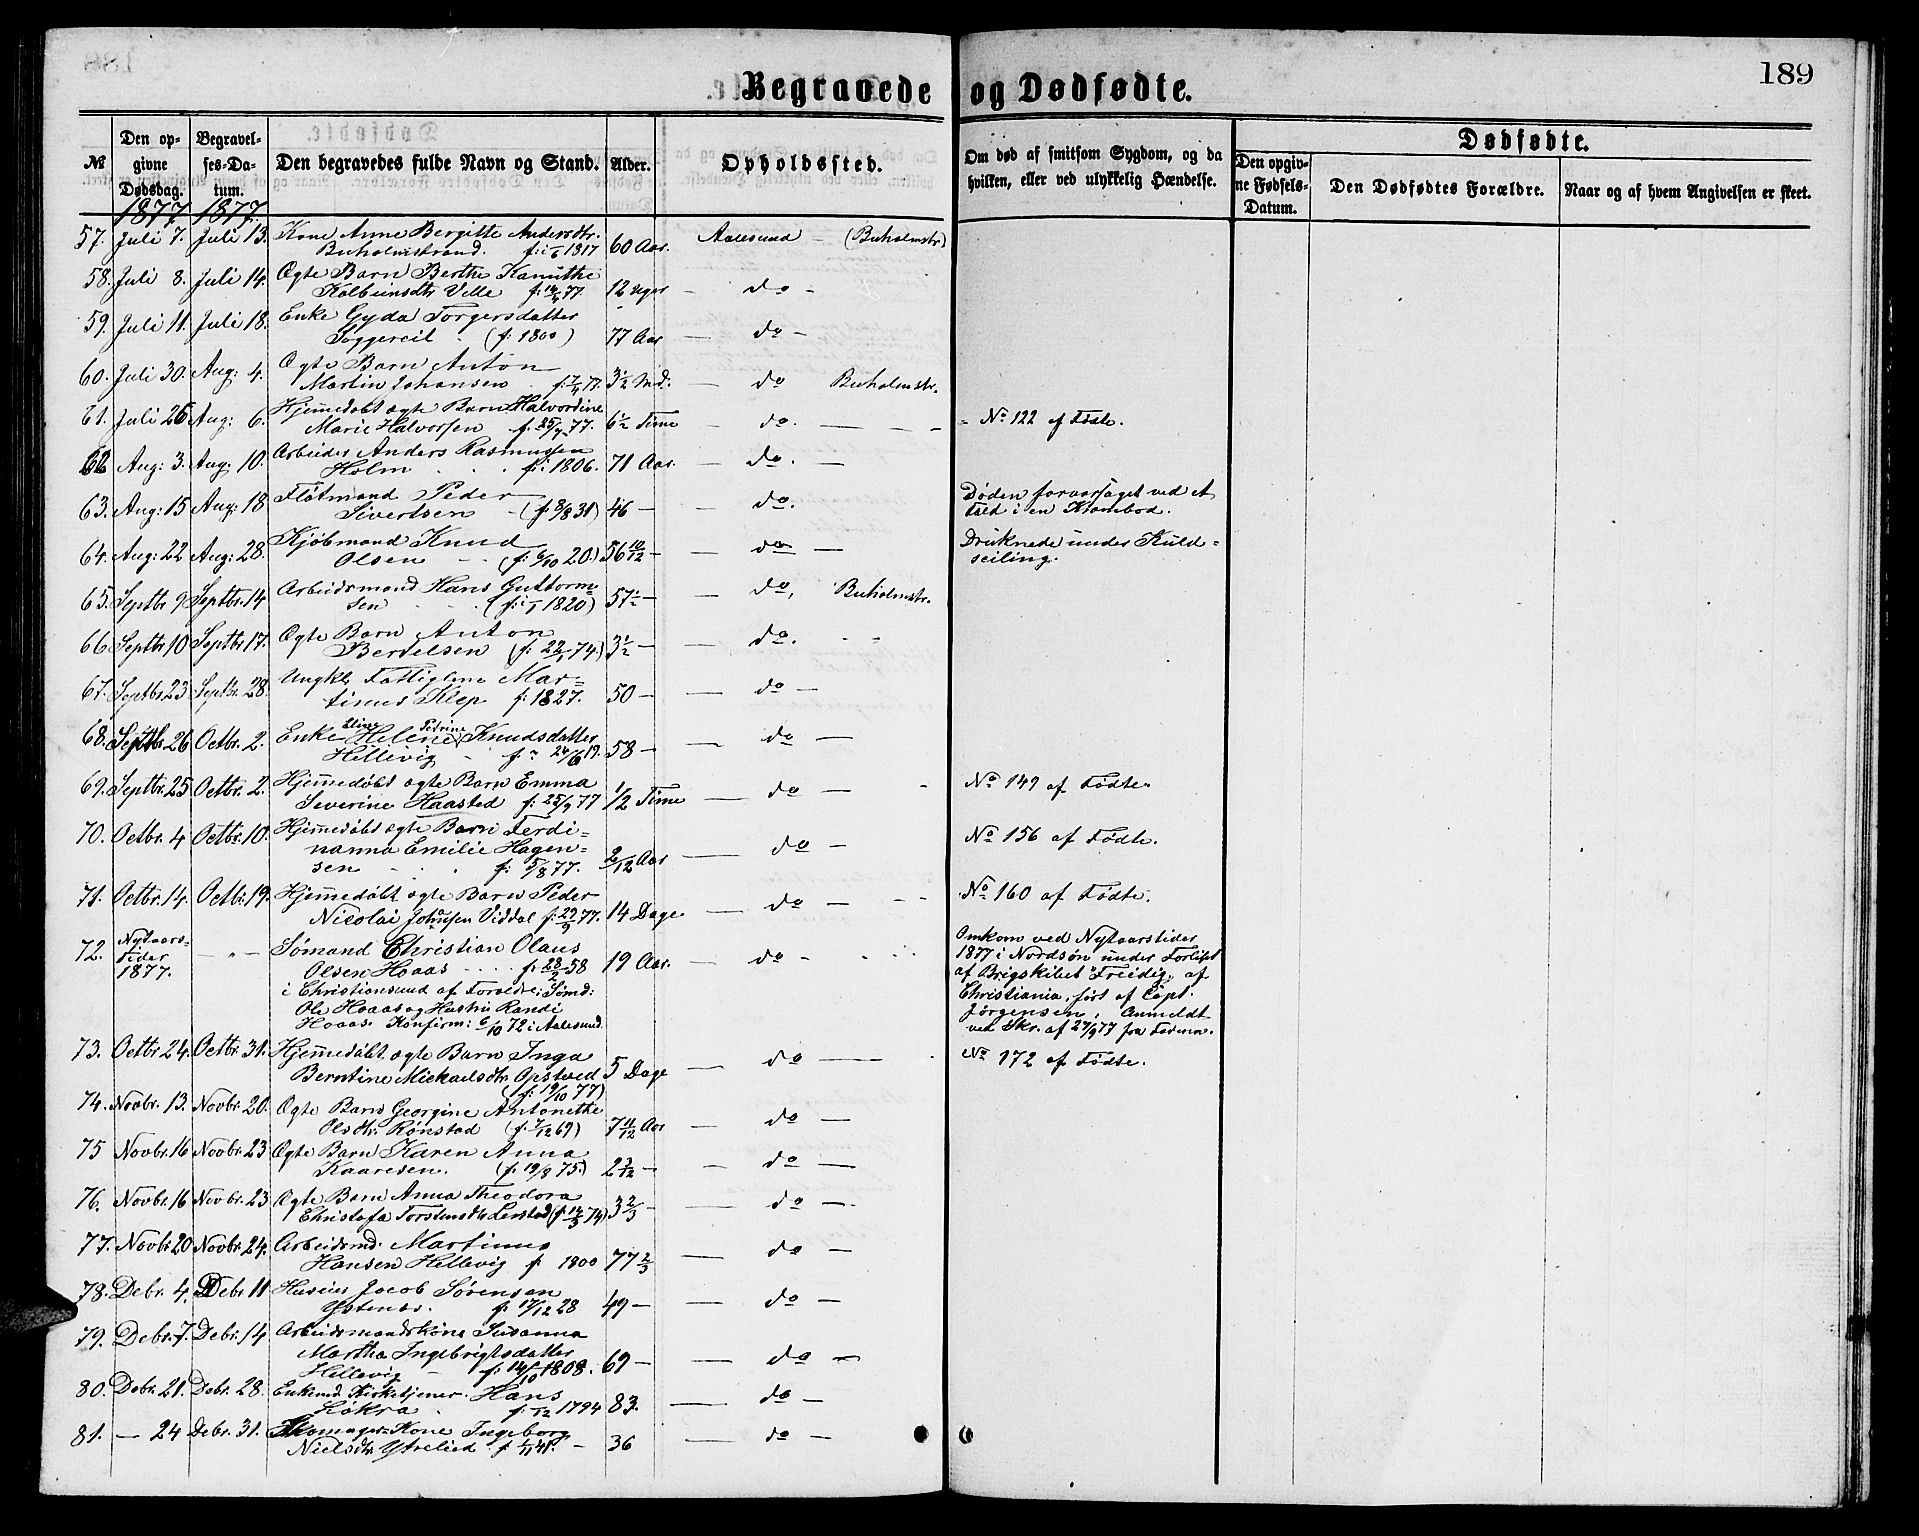 Begravede og Dødfødte.
189
№
Den opgivne Dødsdag.
Begravelses-Datum.
Den begravedes fulde Navn og Stand.
Alder.
Opholdssted.
Om død af smitsom Sygdom, og da hvilken, eller ved ulykkelig Hændelse.
Dødfødte.
Den opgivne Fødsels-Datum.
Den Dødfødtes Forældre.
Naar og af hvem Angivelsen er skeet.
1877 1877.
57. Juli 7. Juli 13. Kone Anne Bergitte Andersdtr. 60 Aar. Aalesund – (Buholmstr)
Buholmstrand. f: 1817
58. Juli 8. Juli 14. Ægte Barn Berthe Kanutthe
Kolbeinsdtr Velle f: 14/4 77. 12 Uger – do –
59. Juli 11. Juli 18. Enke Gyda Torgersdatter
(f: 1800) 77 Aar – do –
60. Juli 30. Aug: 4. Ægte Barn Anton
Martin Johansen f: 7/4 77. 3½ Md. – do Buholmstr.
61. Juli 26 Aug: 6. Hjemmedøbt ægte Barn Halvordine
Marie Halvorsen f: 25/7 77. 6½ Time – do. – No 122 af Fødte.
62 Aug: 3. Aug: 10. Arbeider Anders Rasmussen
Holm f: 1806. 71 Aar. – do. –
63. Aug: 15 Aug: 18 Fløtmand Peder
Sivertsen – (f: 3/8 31) 46 – – do. Døden foraarsaget ved et
Fald i en Krambod.
64. Aug: 22 Aug: 28. Kjøbmand Knud
Olsen – (f: 6/10 20.) 56 10/12 – – do – Druknede under Kuldseiling.
65. Septbr 9 Septbr. 14 Arbeidsmand Hans Guttormsen
(f: 1820) 57½ – – do, Buholmstr.
66 Septbr 10 Septbr 17. Ægte Barn Anton
Bertelsen (f: 22/1 74.) 3½ – do. " "
67. Septbr 23 Septbr. 28. Ungkl. Fattiglem Martinus
Klep f: 1827. 50 – – do –
68. Septbr 26 Octbr. 2. Enke Eline Helene Petrine Knudsdatter
Hellevig f: 24/6 19. 58 – – do –
69. Septbr. 25 Octbr. 2. Hjemmedøbt ægte Barn Emma
Severine Haasted f: 25/9 77 1/2 Time – do – No 149 af Fødte.
70. Octbr. 4 Octbr. 10. Hjemmedøbt ægte Barn Ferdinanna
Emilie Hagensen
f: 5/8 77. 2/12 Aar – do – No 156 af Fødte.
71. Octbr. 14. Octbr. 19. Hjemmedøbt ægte Barn Peder
Nicolai Johnsen Viddal f: 29/9 77. 14 Dage – do – No 160 af Fødte.
72. Nytaars-
Tider
1877. – " – Sømand Christian Olaus
Olsen Hoaas f: 28/2 58 19 Aar. – do –
i Christiansund af Forældre: Sømd:
Ole Hoaas og Hustru Randi
Hoaas. Konfirm: 6/10 72 i Aalesund.
Omkom ved Nytaarstider
1877 i Nordsøn under Forliset
af Brigskibet "Freidig" af
Christiania, ført af Capt.
Jørgensen. Anmeldt
ved Skr. af 27/9 77 fra Faderen.
73. Octbr. 24. Octbr. 31. Hjemmedøbt ægte Barn Inga
Berntine Mickaelsdtr. Opstved
(f: 19/10 77) 5 Dage – do – No 172 af Fødte.
74. Novbr. 13. Novbr. 20. Ægte Barn Georgine Antonethe
Olsdtr. Rønstad (f: 7/12 69) 7 11/12 Aar – do –
75 Novbr. 16 Novbr. 23 Ægte Barn Karen Anna
Kaaresen. (f: 19/8 75.) 2 3/12 – – do –
76. Novbr. 16 Novbr. 23 Ægte Barn Anna Theodora
Christofa Torstensdtr Lerstad (f: 14/3 74) 3 2/3 – – do –
77. Novbr 20 Novbr. 24. Arbeidsmd. Martinus
Hansen Hellevig f: 1800 77 2/3 – do –
78. Debr. 4. Debr 11 Huseier Jacob Sørensen
Ystenæs. f: 17/12 28 49 – – do –
79. Debr. 7. Debr. 14 Arbeidsmandskone Susanna
Martha Ingebrigtsdatter
Hellevig f: 14/10 1808. 69 – – do –
80. Debr. 21. Debr. 28. Enkemd. Kirketjener Hans
Løkra f: /12 1794 83. – do –
81. – 24 Debr. 31. Skomager-Kone Ingeborg
Nielsdtr. Ytrelied f: 1/11 41. – 36 – do –